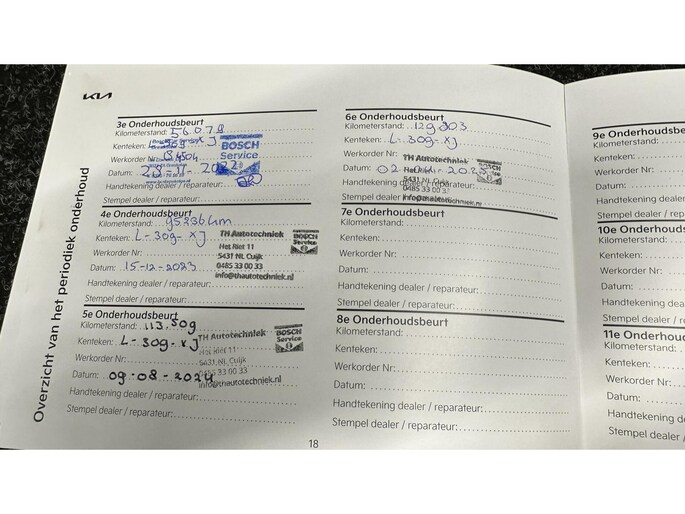 KIA
Overzicht van het periodiek onderhoud
3e Onderhoudsbeurt
Kilometerstand:
Kenteken:
Werkorder Nr:
Datum:
Handtekening dealer / reparateur:
Stempel dealer / reparateur:
BOSCH
Service
4e Onderhoudsbeurt
Kilometerstand: 95236 km
Kenteken: L-309-XJ
Werkorder Nr:
Datum: 15-12-2023
Handtekening dealer / reparateur:
Stempel dealer / reparateur:
TH Autotechniek
Het Riet 11
5431 NL Cuijk
0485 33 00 33
info@thautotechniek.nl
BOSCH
Service
5e Onderhoudsbeurt
Kilometerstand: 113.509
Kenteken: L-309-XJ
Werkorder Nr:
Datum: 09-08-2024
Handtekening dealer / reparateur:
Stempel dealer / reparateur:
TH Autotechniek
Het Riet 11
5431 NL Cuijk
0485 33 00 33
info@thautotechniek.nl
BOSCH
Service
18
6e Onderhoudsbeurt
Kilometerstand: 129303
Kenteken: L-309-XJ
Werkorder Nr:
Datum:
Handtekening dealer / reparateur:
Stempel dealer / reparateur:
TH Autotechniek
5431 NL Cuijk
0485 33 00
info@thautotechniek.nl
7e Onderhoudsbeurt
Kilometerstand:
Kenteken:
Werkorder Nr:
Datum:
Handtekening dealer / reparateur:
Stempel dealer / reparateur:
8e Onderhoudsbeurt
Kilometerstand:
Kenteken:
Werkorder Nr:
Datum:
Handtekening dealer / reparateur:
Stempel dealer / reparateur:
9e Onderhoudsbe
Kilometerstand:
Kenteken:
Werkorder Nr:
Datum:
Handtekening dealer
Stempel dealer / rep
10e Onderhouds
Kilometerstand:
Kenteken:
Werkorder Nr:
Datum:
Handtekening dealer /
Stempel dealer / repara
11e Onderhoudsb
Kilometerstand:
Kenteken:
Werkorder Nr:
Datum:
Handtekening dealer / re
Stempel dealer /